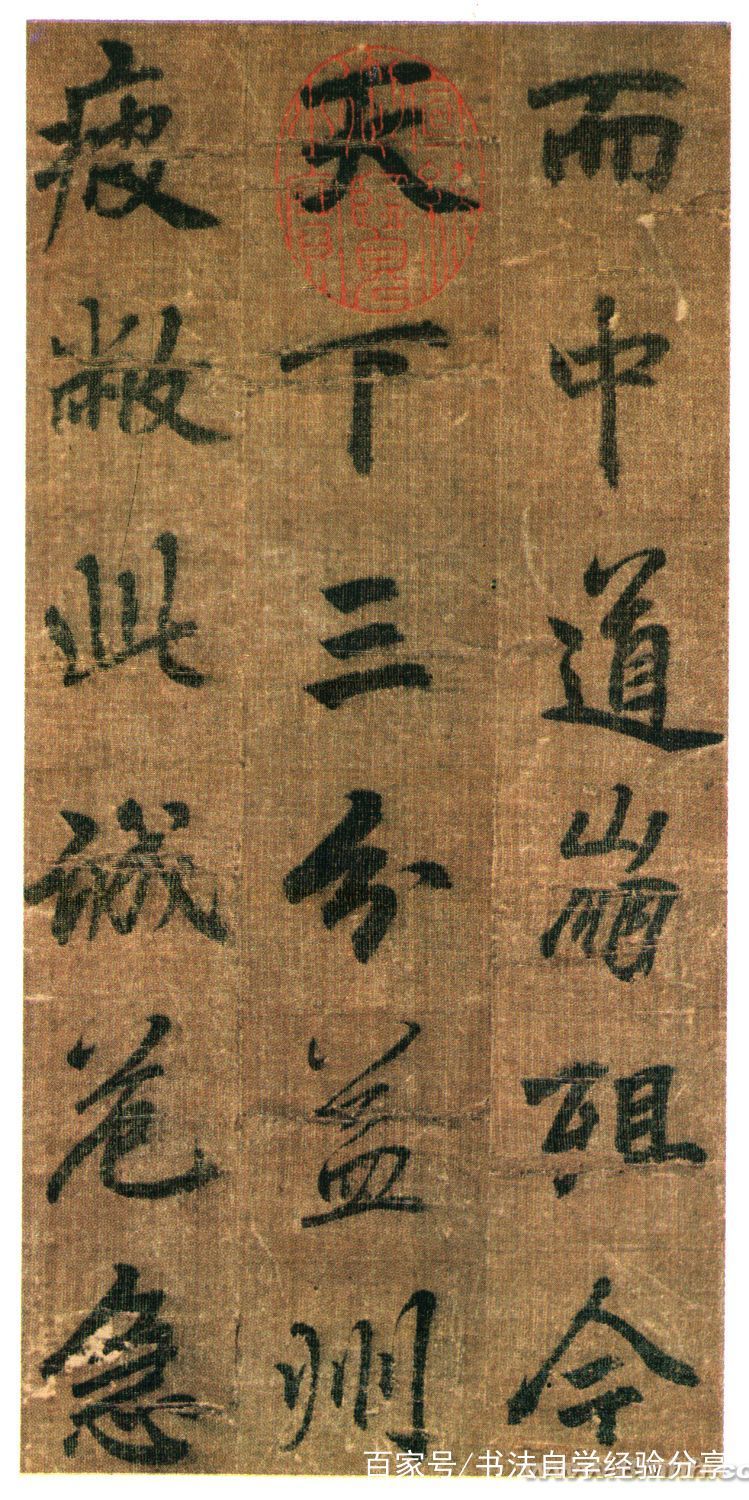 而中道崩殂今
天下三分益州
疲敝此誠危急
百家号/书法自学经验分享